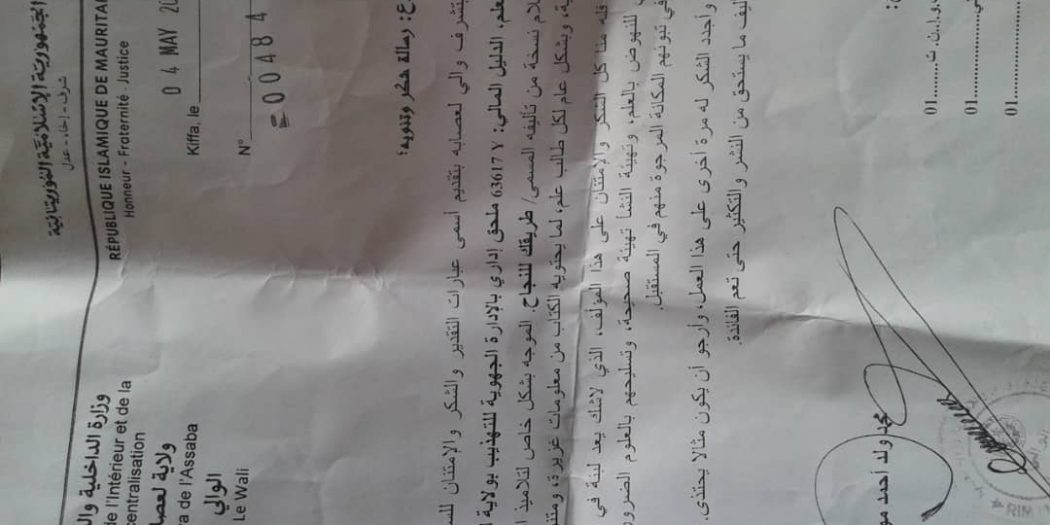 الجمهورية الإسلامية الموريتانية
شرف - إخاء - عدل
RÉPUBLIQUE ISLAMIQUE DE MAURITA
Honneur - Fraternité - Justice
وزارة الداخلية
de l'Intérieur et de la
centralisation
ولاية لعصا
a de l'Assaba
الوالي
Le Wali
Kiffa, le 0 4 MAY 20
N° 00484
ع: رسالة شكر وتنويه؛
يتشرف والي لعصابه بتقديم أسمى عبارات التقدير والشكر والإمتنان للس
علم، الدليل المالي: 63617 Y ملحق إداري بالإدارة الجهوية للتهذيب بولاية
لام نسخة من تأليفه المسمى/ طريقك للنجاح. الموجه بشكل خاص لتلاميذ
ية، وبشكل عام لكل طالب علم، لما يحتويه الكتاب من معلومات غزيرة، ومتن
فله منا كل الشكر والإمتنان على هذا المؤلف، الذي لاشك يعد لبنة في
للنهوض بالعلم، وتهيئة النشأ تهيئة صحيحة، وتسليحهم بالعلوم الضرور
في تبوئهم المكانة المرجوة منهم في المستقبل.
وأجدد الشكر له مرة أخرى على هذا العمل، وأرجو أن يكون مثالا يحتذى.
أليف ما يستحق من النشر والتكثير حتى تعم الفائدة.
محمد ولد أحمد مو
01
01
01
RIM